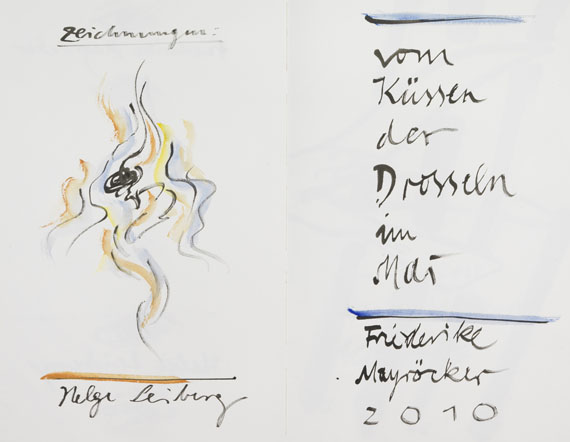 Zeichnungen:
Helge Leiberg
vom
Küssen
der
Drosseln
im
Mai
Friederike
Mayröcker
2010